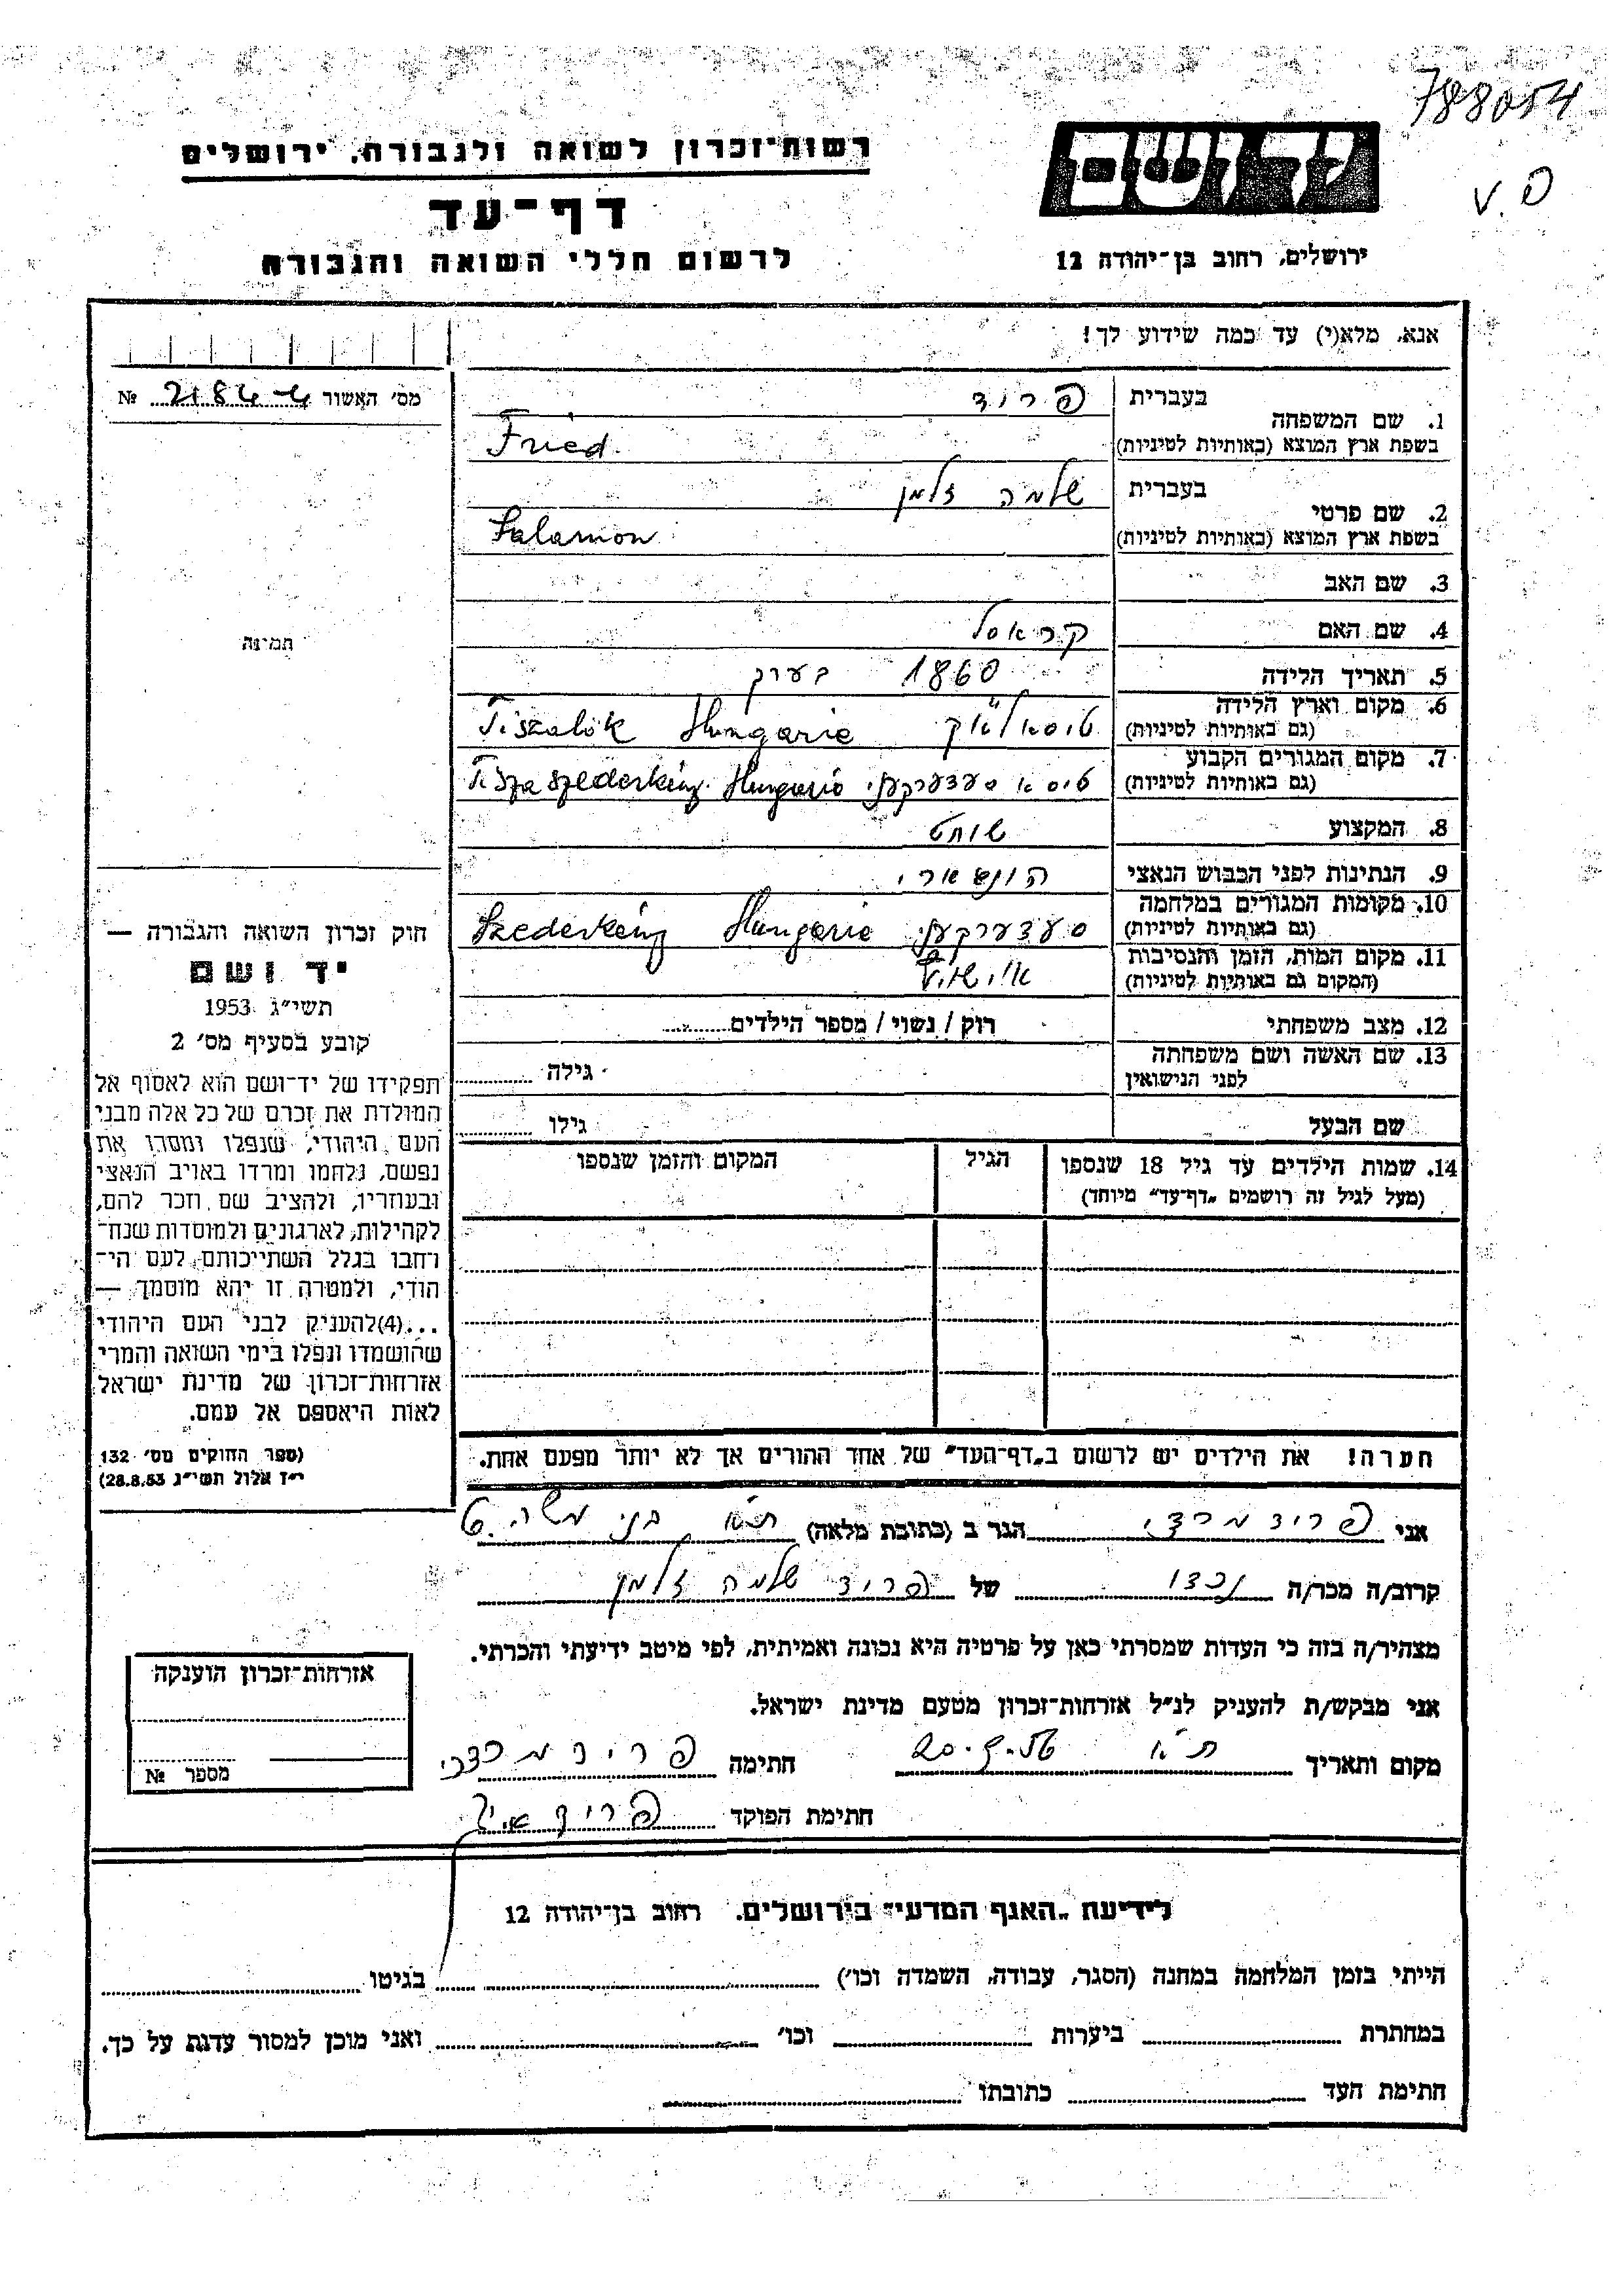 788054
V.P
רשות־זכרון לשואה ולגבורה, ירושלים
יד ושם
דף־עד
לרשום חללי השואה והגבורה
ירושלים, רחוב בן־יהודה 12
אנא, מלא(י) עד כמה שידוע לך!
מס' האשור № 21844
1. שם המשפחה
בעברית פריד
בשפת ארץ המוצא (באותיות לטיניות) Fried
2. שם פרטי
בעברית שלמה זלמן
בשפת ארץ המוצא (באותיות לטיניות) Salamon
3. שם האב
4. שם האם קראסל
תמונה
5. תאריך הלידה 1860 בערך
6. מקום וארץ הלידה
(גם באותיות לטיניות) טיסאלאק Hungarie Tiszalök
7. מקום המגורים הקבוע
(גם באותיות לטיניות) טיסא סעדערקעני Hungario Tisza Szederkény
8. המקצוע שוחט
9. הנתינות לפני הכבוש הנאצי הונגארי
10. מקומות המגורים במלחמה
(גם באותיות לטיניות) סעדערקעני Hungarie Szederkény
11. מקום המות, הזמן והנסיבות
(המקום גם באותיות לטיניות) אוישוויץ
12. מצב משפחתי רוק / נשוי / מספר הילדים
13. שם האשה ושם משפחתה
לפני הנישואין גילה
שם הבעל גילו
14. שמות הילדים עד גיל 18 שנספו
(מעל לגיל זה רושמים „דף־עד" מיוחד)
הגיל
המקום והזמן שנספו
חוק זכרון השואה והגבורה —
יד ושם
תשי"ג 1953
קובע בסעיף מס' 2
תפקידו של יד־ושם הוא לאסוף אל
המולדת את זכרם של כל אלה מבני
העם היהודי, שנפלו ומסרו את
נפשם, נלחמו ומרדו באויב הנאצי
ובעוזריו, ולהציב שם וזכר להם,
לקהילות, לארגונים ולמוסדות שנח־
רחבו בגלל השתייכותם לעם הי־
הודי, ולמטרה זו יהא מוסמך —
...(4)להעניק לבני העם היהודי
שהושמדו ונפלו בימי השואה והמרי
אזרחות־זכרון של מדינת ישראל
לאות היאספם אל עמם.
(ספר החוקים מס' 132
י"ז אלול תשי"ג 28.8.53)
הערה! את הילדים יש לרשום ב„דף־העד" של אחד ההורים אך לא יותר מפעם אחת.
אני פריד מרדכי הגר ב (כתובת מלאה) ת"א, בני משה 6
קרוב/ה מכר/ה נכדו של פריד שלמה זלמן
מצהיר/ה בזה כי העדות שמסרתי כאן על פרטיה היא נכונה ואמיתית, לפי מיטב ידיעתי והכרתי.
אני מבקש/ת להעניק לנ"ל אזרחות־זכרון מטעם מדינת ישראל.
מקום ותאריך ת"א 20.9.56 חתימה פריד מרדכי
חתימת הפוקד פריד
אזרחות־זכרון הוענקה
מספר №
לידיעת „האגף המדעי" בירושלים, רחוב בן־יהודה 12
הייתי בזמן המלחמה במחנה (הסגר, עבודה, השמדה וכו') בגיטו
במחתרת ביערות וכו' ואני מוכן למסור עדות על כך.
חתימת העד כתובתו